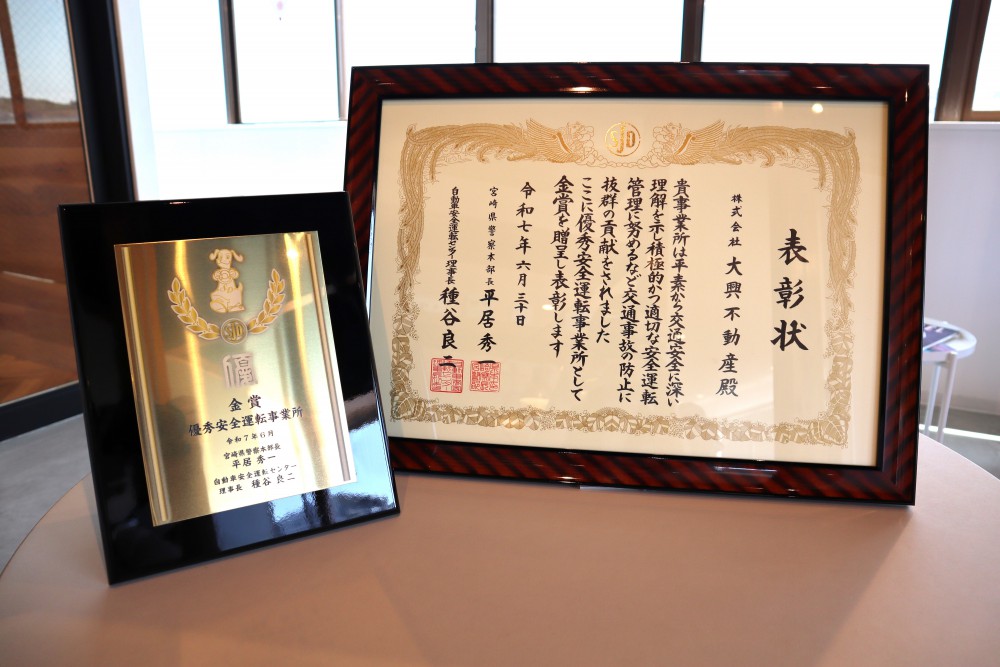 SJD
優
金賞
優秀安全運転事業所
令和7年6月
宮崎県警察本部長
平居 秀一
自動車安全運転センター
理事長 種谷 良二
SJD
表彰状
株式会社 大興不動産殿
貴事業所は平素から交通安全に深い
理解を示し積極的かつ適切な安全運転
管理に努めるなど交通事故の防止に
抜群の貢献をされました
ここに優秀安全運転事業所として
金賞を贈呈し表彰します
令和七年六月三十日
宮崎県警察本部長 平居秀一
自動車安全運転センター理事長 種谷良二